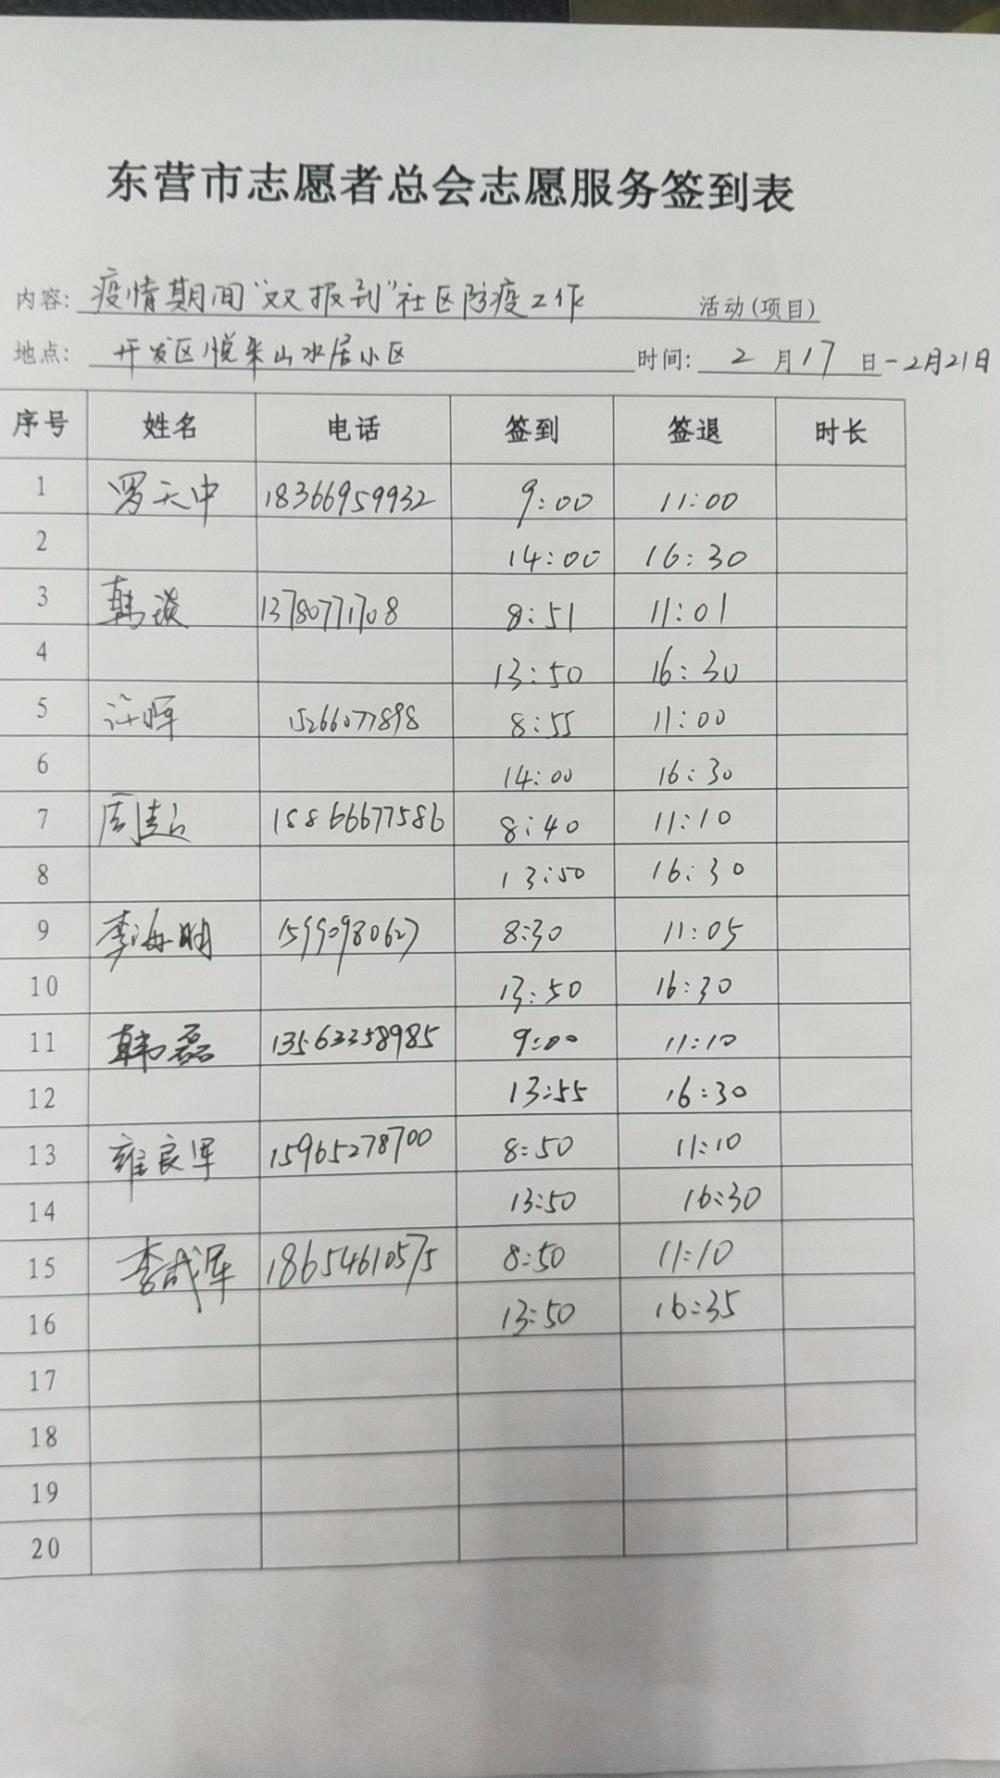 东营市志愿者总会志愿服务签到表
内容: 疫情期间"双报到"社区防疫工作 活动(项目)
地点: 开发区悦来山水居小区 时间: 2月17日-2月21日
序号 姓名 电话 签到 签退 时长
1 罗天中 18366959932 9:00 11:00
2 14:00 16:30
3 韩 13780771708 8:51 11:01
4 13:50 16:30
5 许晖 15266077898 8:55 11:00
6 14:00 16:30
7 周 15866677586 8:40 11:10
8 13:50 16:30
9 李海明 15990980627 8:30 11:05
10 13:50 16:30
11 韩磊 13563358985 9:00 11:10
12 13:55 16:30
13 雍良军 15965278700 8:50 11:10
14 13:50 16:30
15 李成军 18654610575 8:50 11:10
16 13:50 16:35
17
18
19
20